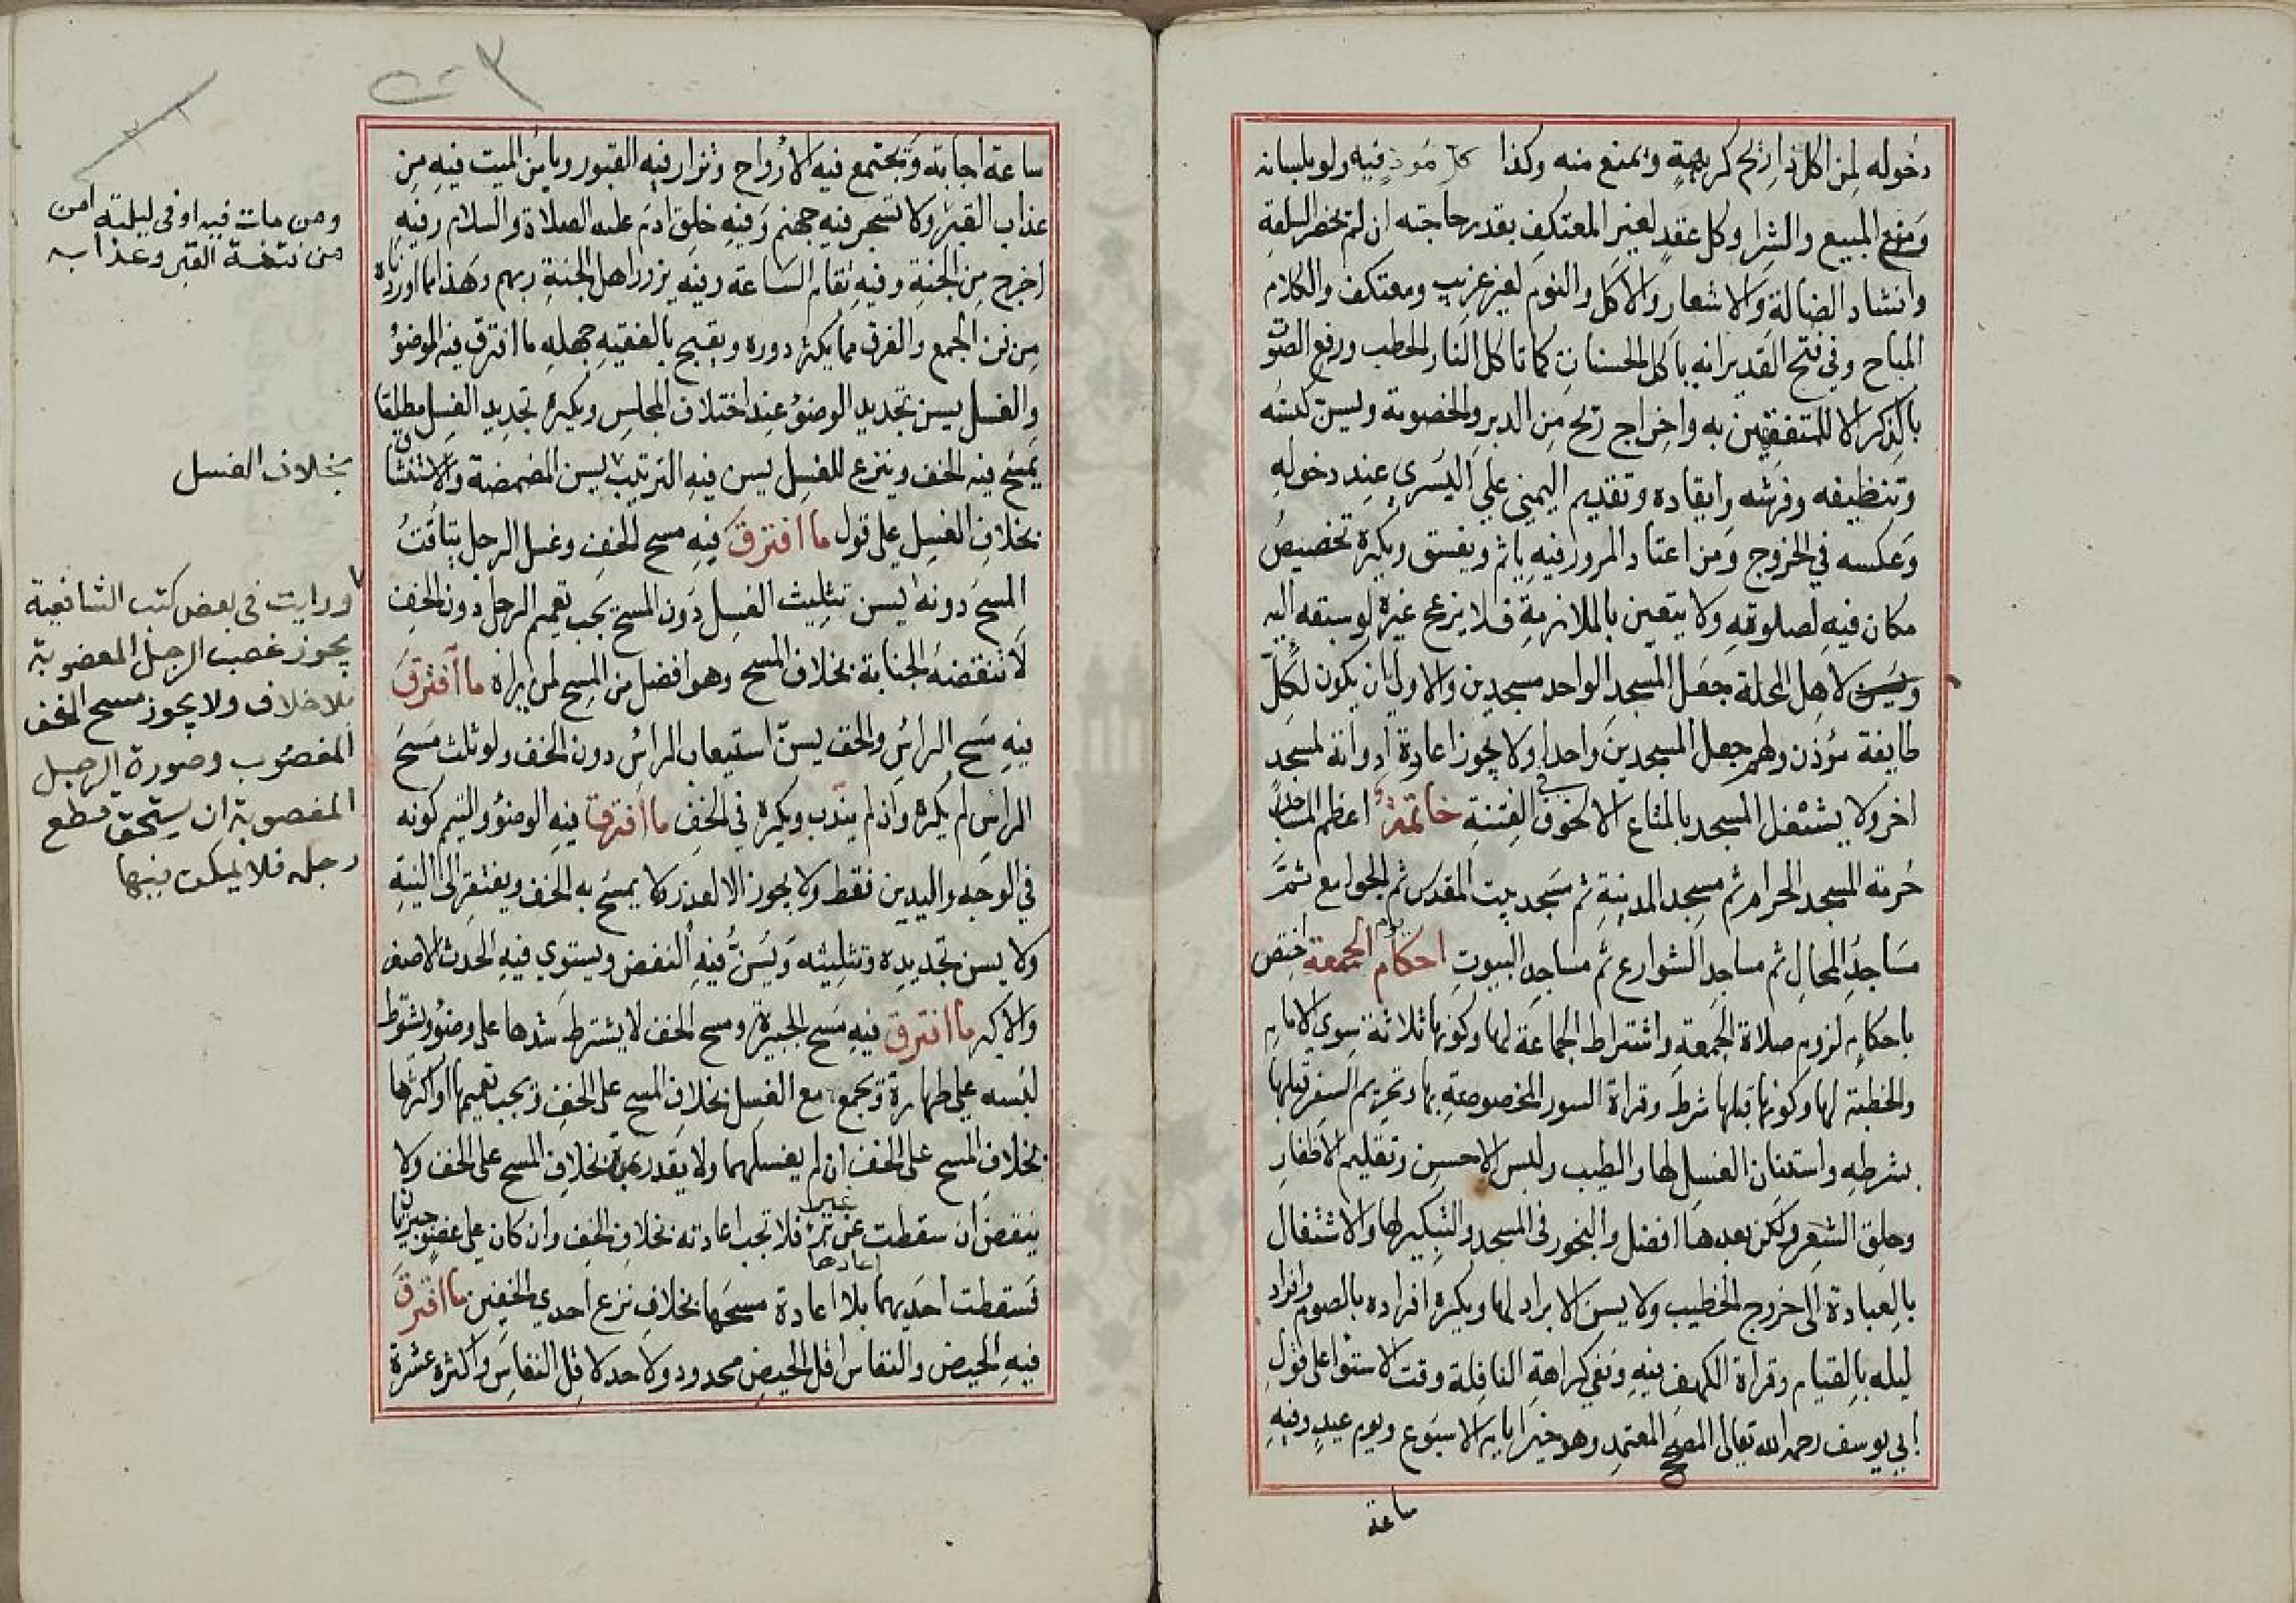 دخوله لمن اكل ذا ريح كريهة ويمنع منه وكذا كل موذ فيه ولو بلسانه
ومنع المبيع والشرا وكل عقد لغير المعتكف بقدر حاجته ان لم تحضر السلعة
وانشاد الضالة والاشعار والاكل والنوم لغير غريب ومعتكف والكلام
المباح وفي فتح القدير انه ياكل الحسنات كما تاكل النار الحطب ورفع الصوت
بالذكر الا للمتفقهين به واخراج ريح من الدبر والخصومة ويسن كنسه
وتنظيفه وفرشه وايقاده وتقديم اليمني علي اليسري عند دخوله
وعكسه في الخروج ومن اعتاد المرور فيه ياثم ويفسق ويكره تخصيص
مكان فيه لصلوته ولا يتعين بالملازمة فلا يزعج غيره لو سبقه اليه
لاهل المحلة جعل المسجد الواحد مسجدين والاولي ان يكون لكل
طايفة مؤذن ولهم جعل المسجدين واحدا ولا يجوز اعادة ادواته لمسجد
اخر ولا يشتغل المسجد بالمتاع الا لخوف في الفتنة خاتمة اعظم المساجد
حرمة المسجد الحرام ثم مسجد المدينة ثم مسجد بيت المقدس ثم الجوامع ثم
مساجد المحال ثم مساجد الشوارع ثم مساجد البيوت احكام يوم الجمعة اختص
باحكام لزوم صلاة الجمعة واشتراط الجماعة لها وكونها ثلاثة سوي الامام
والخطبة لها وكونها قبلها شرط وقراة السور المخصوصة بها وتحريم السفر قبلها
بشرطه واستنان الغسل لها والطيب ولبس الاحسن وتقليم الاظفار
وحلق الشعر ولكن بعدها افضل والبخور في المسجد والتبكير لها والاشتغال
بالعبادة الى خروج الخطيب ولا يسن الابراد لها ويكره افراده بالصوم وافراد
ليله بالقيام وقراة الكهف فيه ونفي كراهة النافلة وقت الاستوا على قول
ابي يوسف رحمه الله تعالى المصحح المعتمد وهو خير ايام الاسبوع ويوم عيد وفيه
ساعة
ساعة اجابة وتجتمع فيه الارواح وتزار فيه القبور ويامن الميت فيه من
عذاب القبر ولا تسجر فيه جهنم وفيه خلق ادم عليه الصلاة والسلام وفيه
اخرج من الجنة وفيه تقام الساعة وفيه يزور اهل الجنة ربهم وهذا ما اوردناه
من فن الجمع والفرق مما يكثر دوره ويقبح بالفقيه جهله ما افترق فيه الوضؤ
والغسل يسن تجديد الوضؤ عند اختلاف المجلس ويكره تجديد الغسل مطلقا
يمسح فيه الخف وينزع للغسل يسن فيه الترتيب يسن المضمضة والاستنشاق
بخلاف الغسل على قول ما افترق فيه مسح الخف وغسل الرجل يتاقت
المسح دونه يسن تثليث الغسل دون المسح يجب تعميم الرجل دون الخف
لا تنقضه الجنابة بخلاف المسح وهو افضل من المسح لمن يراه ما افترق
فيه مسح الراس والخف يسن استيعاب الراس دون الخف ولو ثلث مسح
الراس لم يكره وان لم يندب ويكره في الخف ما افترقا فيه الوضؤ والتيمم كونه
في الوجه واليدين فقط ولا يجوز الا لعذر ولا يمسح به الخف ويفتقر الى النية
ولا يسن تجديده وتثليثه ويسن فيه النفض ويستوي فيه الحدث الاصغر
والاكبر ما افترق فيه مسح الجبيرة ومسح الخف لا يشترط شدها على وضؤ ويشترط
لبسه علي طهارة وتجمع مع الغسل بخلاف المسح على الخف ويجب تعميمها او اكثرها
بخلاف المسح على الخف ان لم يغسلهما ولا يقدر بمدة بخلاف المسح على الخف ولا
ينقض ان سقطت عن غير برء فلا تجب اعادته بخلاف الخف وان كان علي عضو جبيرتان
فسقطت احديهما اعادها بلا اعادة مسحها بخلاف نزع احدي الخفين ما افترق
فيه الحيض والنفاس اقل الحيض محدود ولا حد لاقل النفاس واكثره عشرة
ومن مات فيه او في ليلته امن
من فتنة القبر وعذابه
بخلاف الغسل
ورايت في بعض كتب الشافعية
يجوز غصب الرجل المغصوبة
بلا خلاف ولا يجوز مسح الخف
المغصوب وصورة الرجل
المغصوبة ان يستحق قطع
رجله فلا يمكن منها